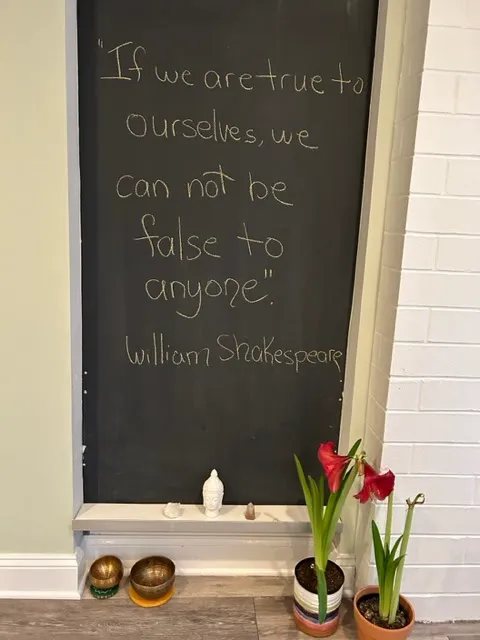 "If we are true to
ourselves, we
can not be
false to
anyone".
William Shakespeare